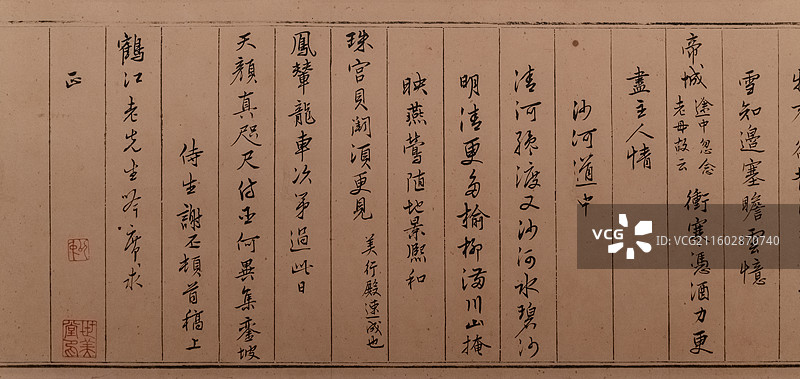 雪知邊塞瞻雲憶
帝城途中忽念老母故云衝寒憑酒力更
盡主人情
沙河道中
清河預渡又沙河水碧沙
明清更多榆柳滿川山掩
映燕鶯隨地景熙和
珠宮貝闕須更見美行殿速成也
鳳輦龍車次第過此日
天顏真咫尺侍臣何異集鑾坡
侍生謝丕頓首稿上
鶴江老先生吟席求
正
世美堂
VCG
VCG211602870740